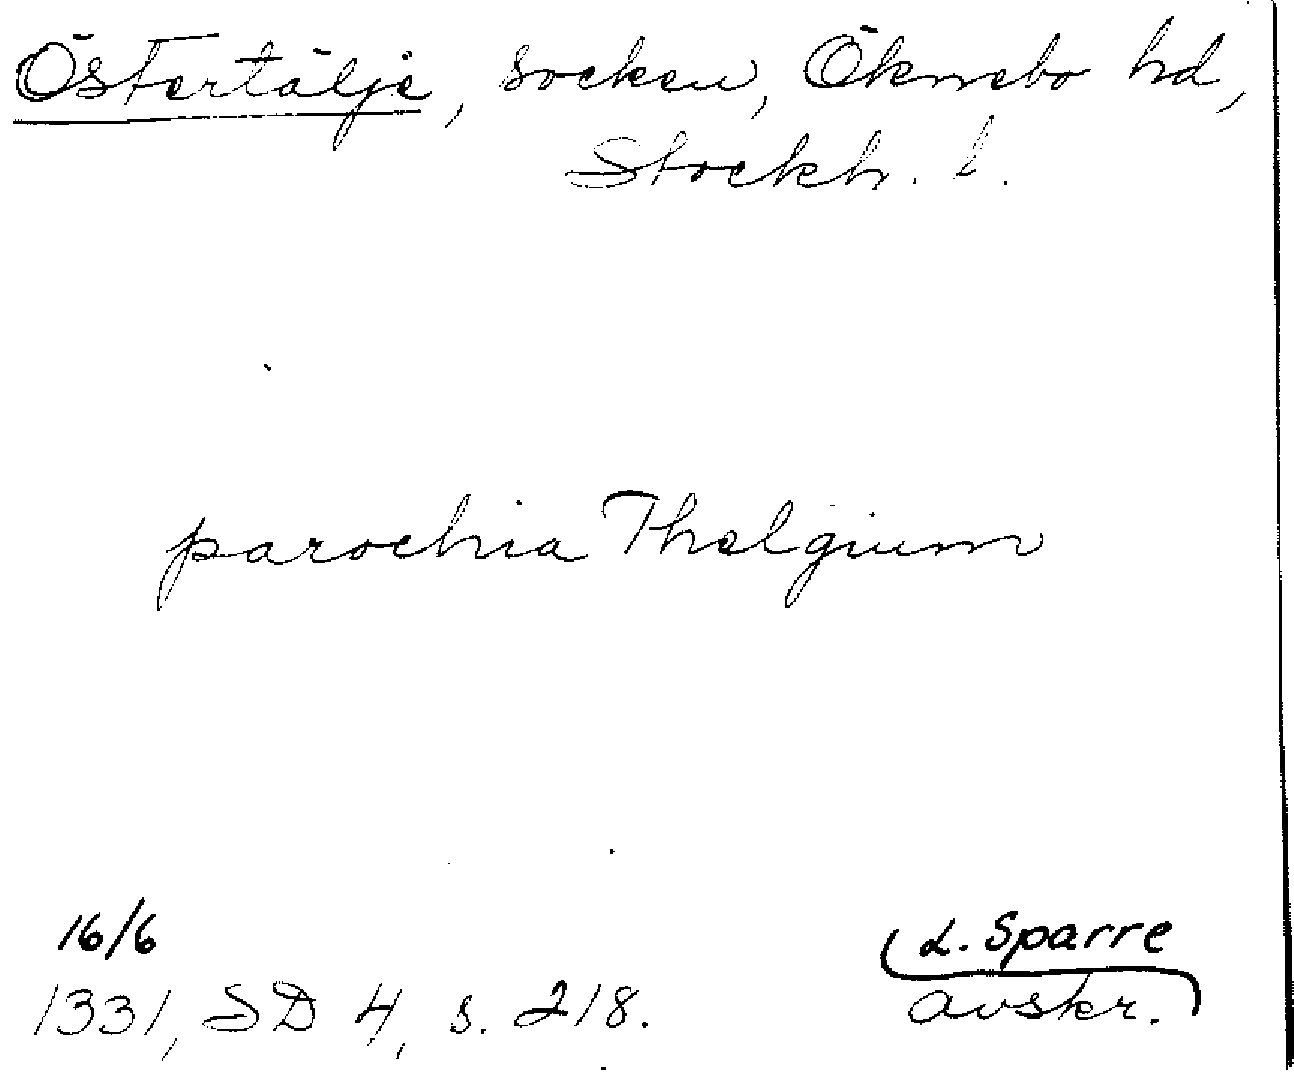 Östertälje, socken, Öknebo hd,
Stockh. l.
parochia Thelgium
16/6
1331, SD 4, s. 218.
L. Sparre
avskr.